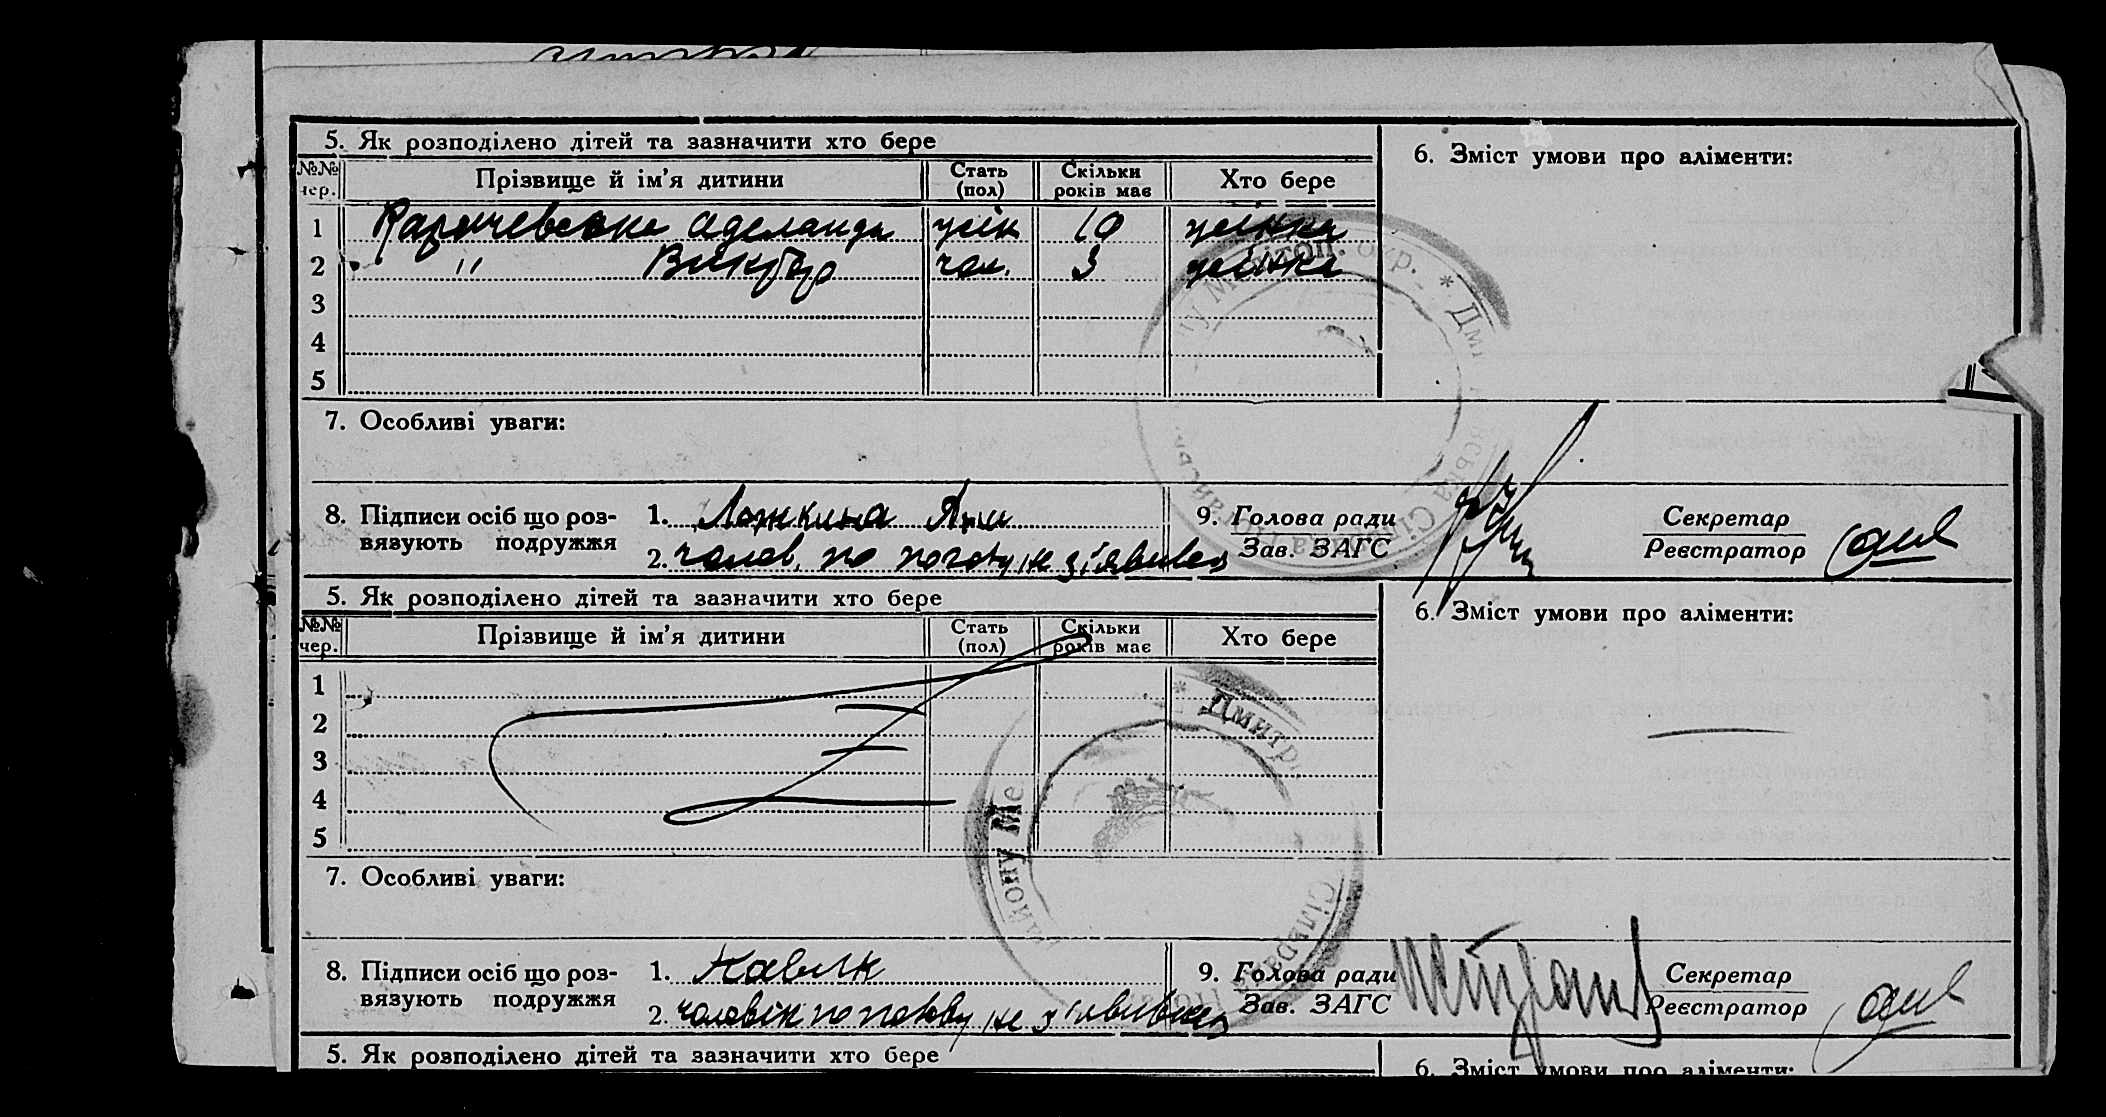 5. Як розподілено дітей та зазначити хто бере
6. Зміст умови про аліменти:
№№ чер. Прізвище й ім'я дитини Стать (пол) Скільки років має Хто бере
1 Аделаида жін 10 жінка
2 " Виктор чол. 3 жінка
3
4
5
7. Особливі уваги:
8. Підписи осіб що роз-
вязують подружжя
1. Ложкина
2. чолов. по не з'явився
9. Голова ради
Зав. ЗАГС
Секретар
Реєстратор
5. Як розподілено дітей та зазначити хто бере
6. Зміст умови про аліменти:
№№ чер. Прізвище й ім'я дитини Стать (пол) Скільки років має Хто бере
1
2
3
4
5
7. Особливі уваги:
8. Підписи осіб що роз-
вязують подружжя
1.
2. чоловік по не з'явився
9. Голова ради
Зав. ЗАГС
Секретар
Реєстратор
5. Як розподілено дітей та зазначити хто бере
6. Зміст умови про аліменти: